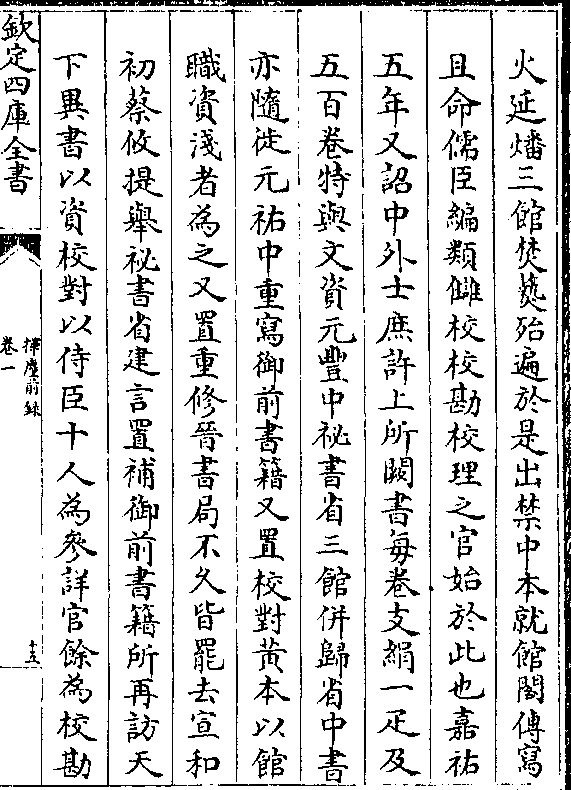 火延燔三館焚爇殆遍於是出禁中本就館閣傳寫
且命儒臣編類讎校校勘校理之官始於此也嘉祐
五年又詔中外士庶許上所闕書每卷支絹一疋及
五百卷特與文資元豐中祕書省三館併歸省中書
亦隨徙元祐中重寫御前書籍又置校對黃本以館
職資淺者為之又置重修晉書局不久皆罷去宣和
初蔡攸提舉祕書省建言置補御前書籍所再訪天
下異書以資校對以侍臣十人為參詳官餘為校勘
欽定四庫全書
揮麈前錄
卷一
十五